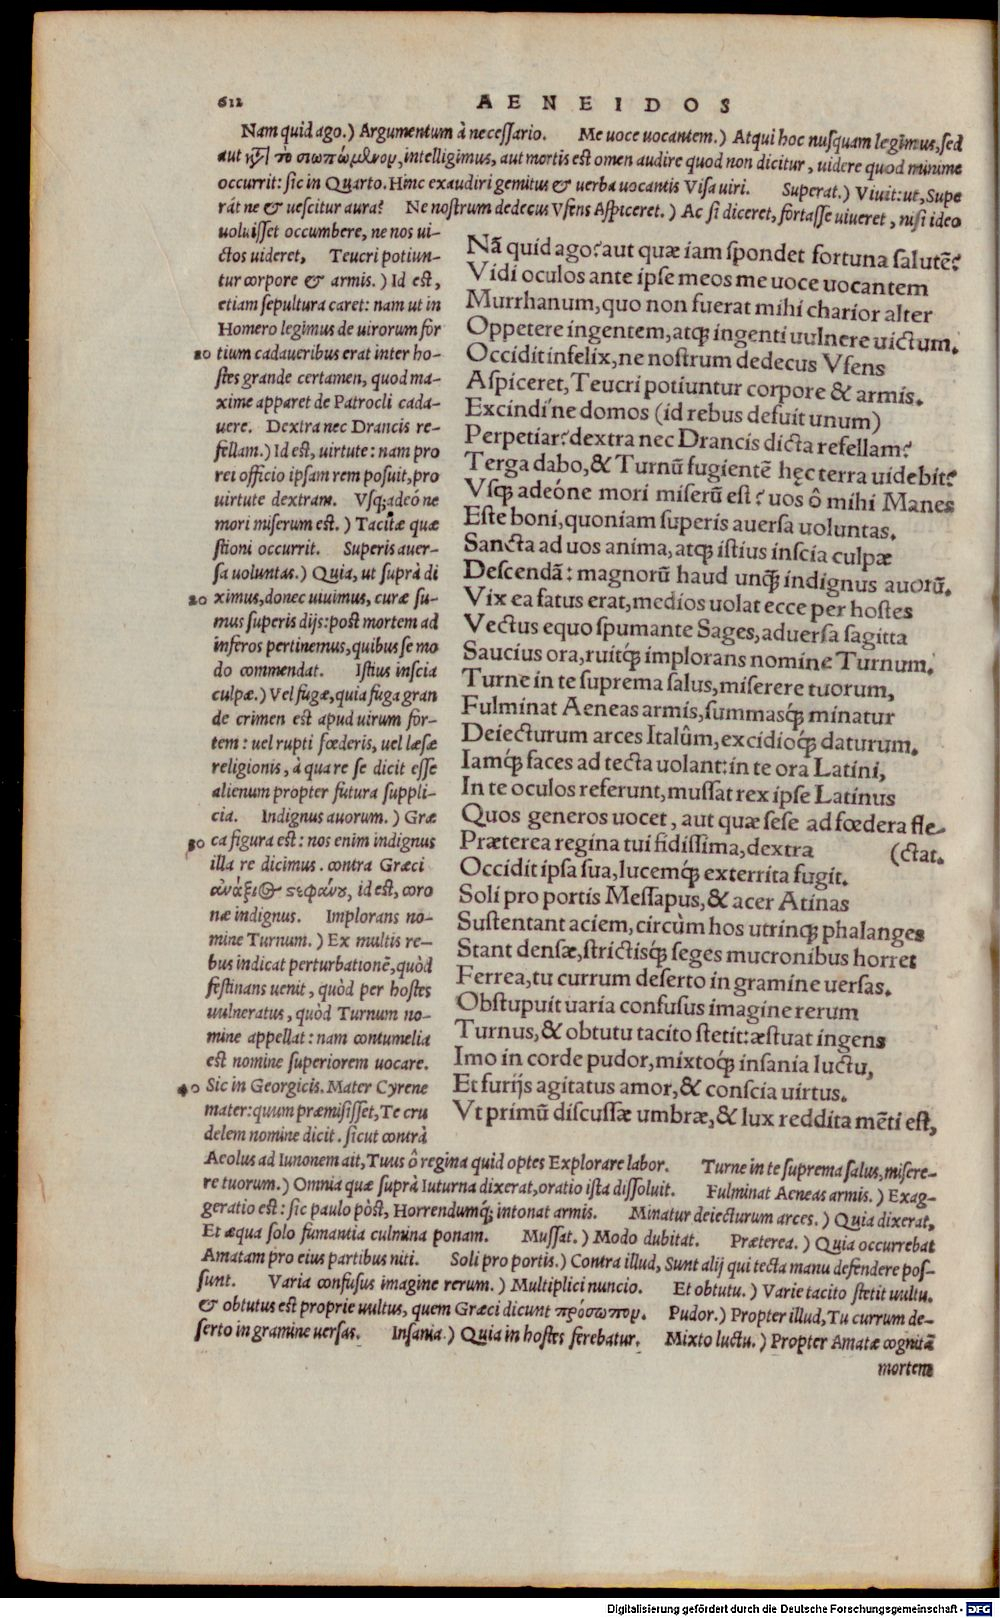 612 AENEIDOS
Nam quid ago.) Argumentum à necessario. Me uoce uocantem.) Atqui hoc nusquam legimus, sed
aut τὸ σιωπώμενον, intelligimus, aut mortis est omen audire quod non dicitur, uidere quod minime
occurrit: sic in Quarto. Hinc exaudiri gemitus & uerba uocantis Visa uiri. Superat.) Viuit: ut, Supe
rát ne & uescitur aura? Ne nostrum dedecus Vsens Aspiceret.) Ac si diceret, fortasse uiueret, nisi ideo
uoluisset occumbere, ne nos ui-
ctos uideret, Teucri potiun-
tur corpore & armis.) Id est,
etiam sepultura caret: nam ut in
Homero legimus de uirorum for
20 tium cadaueribus erat inter ho-
stes grande certamen, quod ma-
xime apparet de Patrocli cada-
uere. Dextra nec Drancis re-
fellam.) Id est, uirtute: nam pro
rei officio ipsam rem posuit, pro
uirtute dextram. Vsq; adeó ne
mori miserum est.) Tacitæ quæ
stioni occurrit. Superis auer-
sa uoluntas.) Quia, ut suprà di
20 ximus, donec uiuimus, curæ su-
mus superis dijs: post mortem ad
inferos pertinemus, quibus se mo
do commendat. Istius inscia
culpæ.) Vel fugæ, quia fuga gran
de crimen est apud uirum for-
tem: uel rupti fœderis, uel læsæ
religionis, à qua re se dicit esse
alienum propter futura suppli-
cia. Indignus auorum.) Græ
30 ca figura est: nos enim indignus
illa re dicimus. contra Græci
ἀνάξιος στεφάνου, id est, coro
næ indignus. Implorans no-
mine Turnum.) Ex multis re-
bus indicat perturbationē, quòd
festinans uenit, quòd per hostes
uulneratus, quòd Turnum no-
mine appellat: nam contumelia
est nomine superiorem uocare.
40 Sic in Georgicis. Mater Cyrene
mater: quum præmisisset, Te cru
delem nomine dicit. sicut contrà
Nã quid ago? aut quæ iam spondet fortuna salutē?
Vidi oculos ante ipse meos me uoce uocantem
Murrhanum, quo non fuerat mihi charior alter
Oppetere ingentem, atq; ingenti uulnere uictum.
Occidit infelix, ne nostrum dedecus Vsens
Aspiceret, Teucri potiuntur corpore & armis.
Excindi'ne domos (id rebus defuit unum)
Perpetiar? dextra nec Drancis dicta refellam?
Terga dabo, & Turnū fugientē hęc terra uidebit?
Vsq; adeóne mori miserū est? uos ô mihi Manes
Este boni, quoniam superis auersa uoluntas.
Sancta ad uos anima, atq; istius inscia culpæ
Descendã: magnorū haud unq̃ indignus auorū.
Vix ea fatus erat, medios uolat ecce per hostes
Vectus equo spumante Sages, aduersa sagitta
Saucius ora, ruitq́; implorans nomine Turnum.
Turne in te suprema salus, miserere tuorum,
Fulminat Aeneas armis, summasq́; minatur
Deiecturum arces Italûm, excidioq́; daturum.
Iamq́; faces ad tecta uolant: in te ora Latini,
In te oculos referunt, mussat rex ipse Latinus
Quos generos uocet, aut quæ sese ad fœdera fle-
Præterea regina tui fidissima, dextra (ctat.
Occidit ipsa sua, lucemq́; exterrita fugit.
Soli pro portis Messapus, & acer Atinas
Sustentant aciem, circùm hos utrinq; phalanges
Stant densæ, strictisq́; seges mucronibus horret
Ferrea, tu currum deserto in gramine uersas.
Obstupuit uaria confusus imagine rerum
Turnus, & obtutu tacito stetit: æstuat ingens
Imo in corde pudor, mixtoq́; insania luctu,
Et furijs agitatus amor, & conscia uirtus.
Vt primū discussæ umbræ, & lux reddita mēti est,
Aeolus ad Iunonem ait, Tuus ô regina quid optes Explorare labor. Turne in te suprema salus, misere-
re tuorum.) Omnia quæ suprà Iuturna dixerat, oratio ista dissoluit. Fulminat Aeneas armis.) Exag-
geratio est: sic paulo pòst, Horrendumq́; intonat armis. Minatur deiecturum arces.) Quia dixerat,
Et æqua solo fumantia culmina ponam. Mussat.) Modo dubitat. Præterea.) Quia occurrebat
Amatam pro eius partibus niti. Soli pro portis.) Contra illud, Sunt alij qui tecta manu defendere pos-
sunt. Varia confusus imagine rerum.) Multiplici nuncio. Et obtutu.) Varie tacito stetit uultu.
& obtutus est proprie uultus, quem Græci dicunt πρόσωπον. Pudor.) Propter illud, Tu currum de-
serto in gramine uersas. Insania.) Quia in hostes ferebatur. Mixto luctu.) Propter Amatæ cognitā
mortem
Digitalisierung gefördert durch die Deutsche Forschungsgemeinschaft - DFG